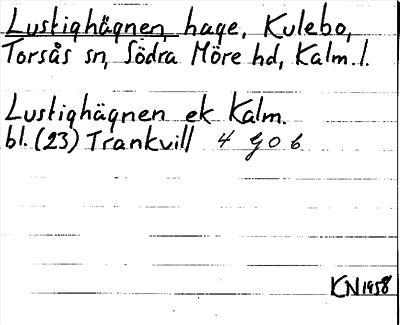 Lustighägnen, hage, Kulebo,
Torsås sn, Södra Möre hd, Kalm. l.
Lustighägnen ek Kalm.
bl. (23) Trankvill 4 G 0 b
KN 1958